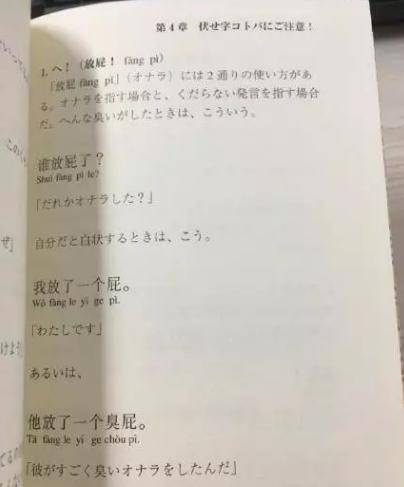 第4章 伏せ字コトバにご注意!
1. へ!(放屁! fàng pì)
「放屁 fàng pì」(オナラ)には2通りの使い方があ
る。オナラを指す場合と、くだらない発言を指す場合
だ。へんな臭いがしたときは、こういう。
谁放屁了?
Shuí fàng pì le?
「だれかオナラした?」
自分だと白状するときは、こう。
我放了一个屁。
Wǒ fàng le yí ge pì.
「わたしです」
あるいは、
他放了一个臭屁。
Tā fàng le yí ge chòu pì.
「彼がすごく臭いオナラをしたんだ」